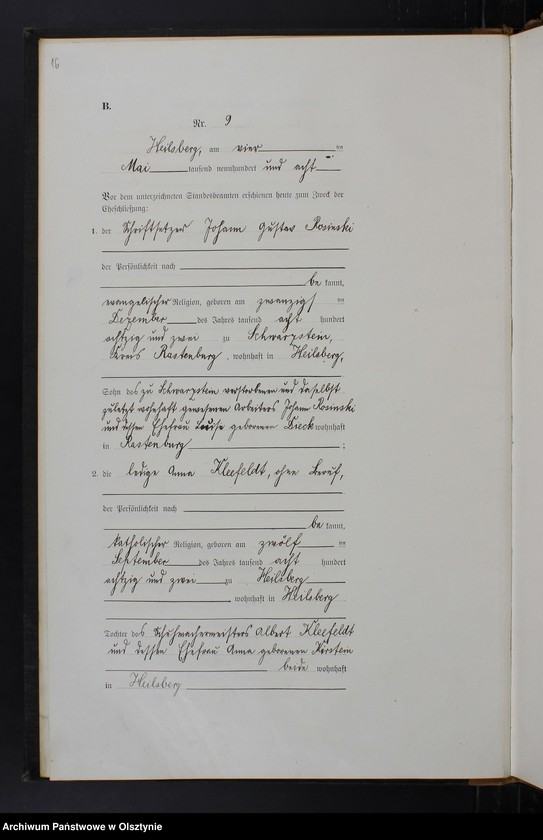 16
B.
Nr. 9
Heilsberg, am vier ten
Mai tausend neunhundert und acht
Vor dem unterzeichneten Standesbeamten erschienen heute zum Zweck der
Eheschließung:
1. der Schriftsetzer Johann Gustav Rosinski
der Persönlichkeit nach
be kannt,
evangelischer Religion, geboren am zwanzigsten
Dezember des Jahres tausend acht hundert
achtzig und zwei zu Schwarzstein,
Kreis Rastenburg, wohnhaft in Heilsberg,
Sohn des zu Schwarzstein verstorbenen und daselbst
zuletzt wohnhaft gewesenen Arbeiters Johann Rosinski
und dessen Ehefrau Louise geborenen Dieck wohnhaft
in Rastenburg ;
2. die ledige Anna Kleefeldt, ohne Beruf,
der Persönlichkeit nach
be kannt,
katholischer Religion, geboren am zwölf ten
September des Jahres tausend acht hundert
achtzig und zwei zu Heilsberg
wohnhaft in Heilsberg
Tochter des Schuhmachermeisters Albert Kleefeldt
und dessen Ehefrau Anna geborenen
beide wohnhaft
in Heilsberg
Archiwum Państwowe w Olsztynie